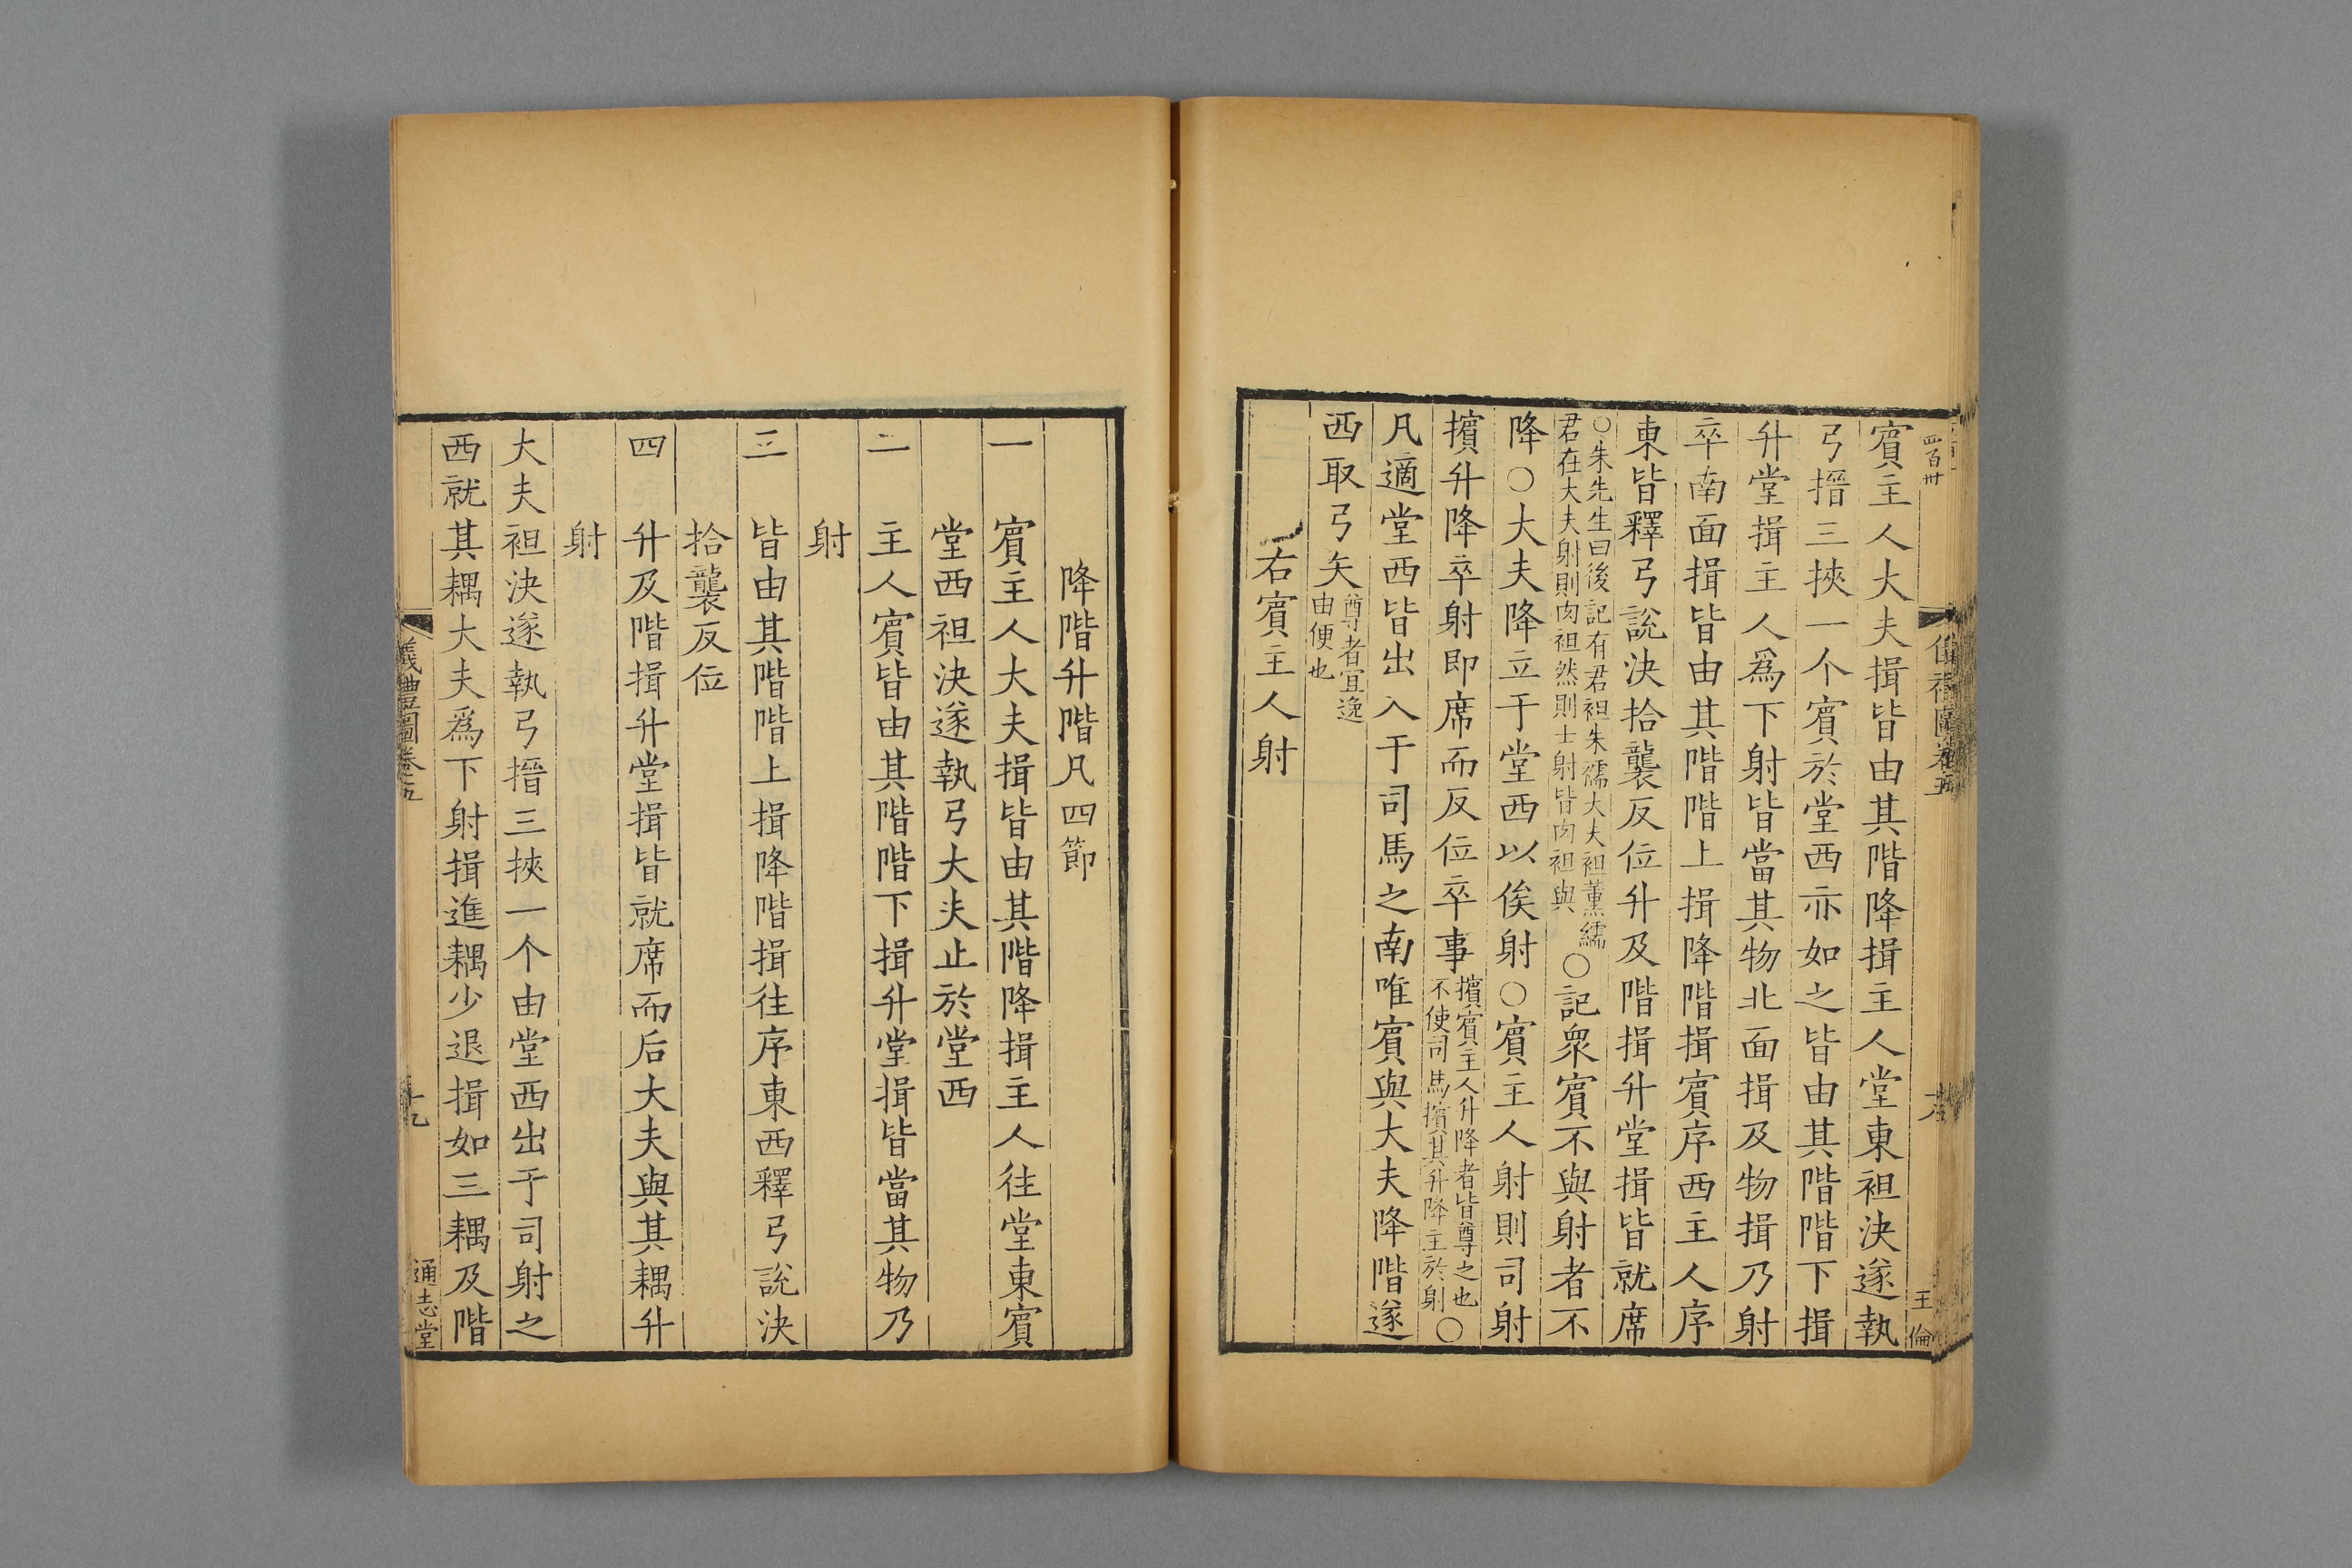 四百卅
儀禮圖卷五
王倫
賓主人大夫揖皆由其階降揖主人堂東袒決遂執
弓搢三挾一个賓於堂西亦如之皆由其階階下揖
升堂揖主人爲下射皆當其物北面揖及物揖乃射
卒南面揖皆由其階階上揖降階揖賓序西主人序
東皆釋弓說決拾襲反位升及階揖升堂揖皆就席
○朱先生曰後記有君袒朱襦大夫袒薰繻
君在大夫射則肉袒然則士射皆肉袒與
○記衆賓不與射者不
降○大夫降立于堂西以俟射○賓主人射則司射
擯升降卒射即席而反位卒事
擯賓主人升降者皆尊之也
不使司馬擯其升降主於射
○
凡適堂西皆出入于司馬之南唯賓與大夫降階遂
西取弓矢
尊者宜逸
由便也
右賓主人射
降階升階凡四節
一 賓主人大夫揖皆由其階降揖主人往堂東賓
堂西袒決遂執弓大夫止於堂西
二 主人賓皆由其階階下揖升堂揖皆當其物乃
射
三 皆由其階階上揖降階揖往序東西釋弓說決
拾襲反位
四 升及階揖升堂揖皆就席而后大夫與其耦升
射
大夫袒決遂執弓搢三挾一个由堂西出于司射之
西就其耦大夫爲下射揖進耦少退揖如三耦及階
儀禮圖卷五
十九
通志堂